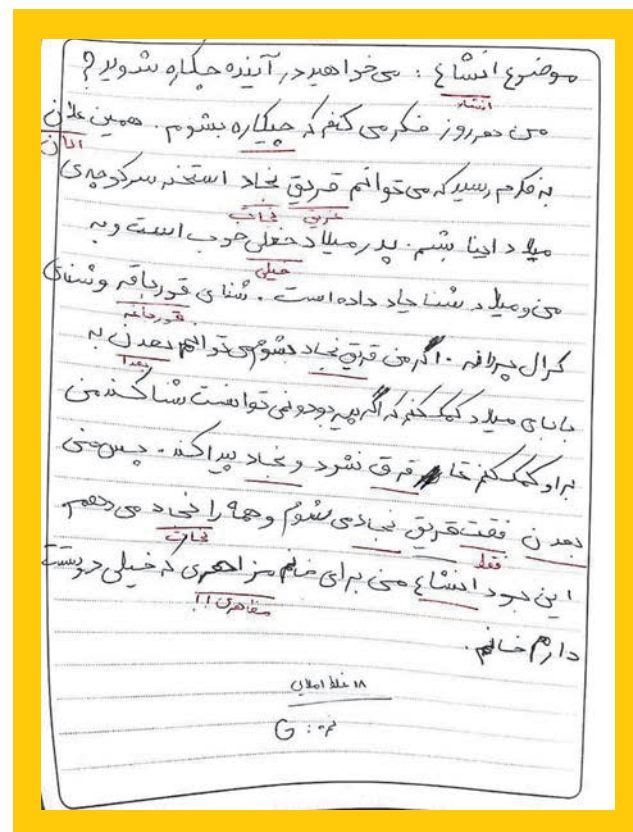 موضوع انشاع : می‌خواهید در آینده چکاره شوید؟
انشاء
من هر روز فکر می کنم که چیکاره بشوم . همین علان
الان
به فکرم رسید که می‌توانم قریق نجاد استخر سرکوچه‌ی
غریق نجات
میلاد اینا بشم . پدر میلاد خعلی خوب است و به
خیلی
من و میلاد شنا یاد داده است . شنای قورباقه و شنای
قورباغه
کرال پروانه . اگر من قریق نجاد بشوم می‌توانم بعدن به
بعدا
بابای میلاد کمک کنم که اگر پیر بود و نمی‌توانست شنا کند من
به او کمک کنم تا قرق نشود و نجاد پیدا کند . پس من
بعدن فقت قریق نجاد می شوم و همه را نجاد می دهم .
فقط نجات
این بود انشاع من برای خانم مزاهری که خیلی دوست
مظاهری !!
دارم خانم .
۱۸ غلط املایی
نمره : G